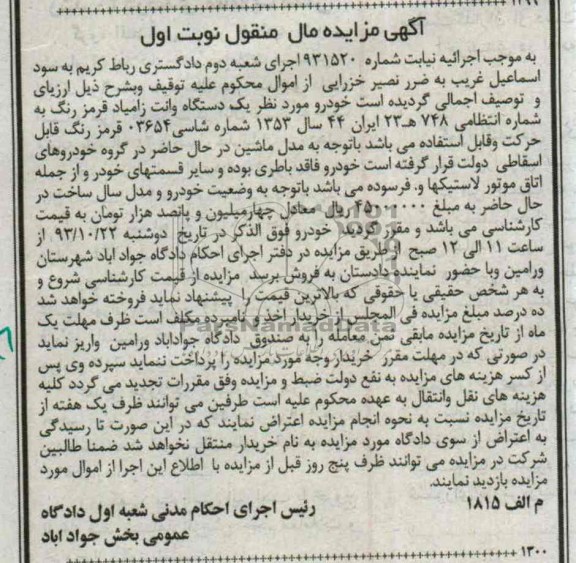 آگهی مزایده مال منقول نوبت اول
به موجب اجرائیه نیابت شماره ۹۳۱۵۲۰ اجرای شعبه دوم دادگستری رباط کریم به سود
اسماعیل غریب به ضرر نصیر خزرایی از اموال محکوم علیه توقیف وبشرح ذیل ارزیای
و توصیف اجمالی گردیده است خودرو مورد نظر یک دستگاه وانت زامیاد قرمز رنگ به
شماره انتظامی ۷۴۸ هـ۲۳ ایران ۴۴ سال ۱۳۵۳ شماره شاسی۰۳۶۵۴ قرمز رنگ قابل
حرکت وقابل استفاده می باشد باتوجه به مدل ماشین در حال حاضر در گروه خودروهای
اسقاطی دولت قرار گرفته است خودرو فاقد باطری بوده و سایر قسمتهای خودر و از جمله
اتاق موتور لاستیکها و. فرسوده می باشد باتوجه به وضعیت خودرو و مدل سال ساخت در
حال حاضر به مبلغ ۴۵۰۰۰۰۰۰ ریال معادل چهارمیلیون و پانصد هزار تومان به قیمت
کارشناسی می باشد و مقرر گردید خودرو فوق الذکر در تاریخ دوشنبه ۹۳/۱۰/۲۲ از
ساعت ۱۱ الی ۱۲ صبح از طریق مزایده در دفتر اجرای احکام دادگاه جواد اباد شهرستان
ورامین وبا حضور نماینده دادستان به فروش برسد مزایده از قیمت کارشناسی شروع و
به هر شخص حقیقی یا حقوقی که بالاترین قیمت را پیشنهاد نماید فروخته خواهد شد
ده درصد مبلغ مزایده فی المجلس از خریدار اخذ و نامبرده مکلف است ظرف مهلت یک
ماه از تاریخ مزایده مابقی ثمن معامله را به صندوق دادگاه جواداباد ورامین واریز نماید
در صورتی که در مهلت مقرر خریدار وجه مورد مزایده را پرداخت ننماید سپرده وی پس
از کسر هزینه های مزایده به نفع دولت ضبط و مزایده وفق مقررات تجدید می گردد کلیه
هزینه های نقل وانتقال به عهده محکوم علیه است طرفین می توانند ظرف یک هفته از
تاریخ مزایده نسبت به نحوه انجام مزایده اعتراض نمایند که در این صورت تا رسیدگی
به اعتراض از سوی دادگاه مورد مزایده به نام خریدار منتقل نخواهد شد ضمنا طالبین
شرکت در مزایده می توانند ظرف پنج روز قبل از مزایده با اطلاع این اجرا از اموال مورد
مزایده بازدید نمایند.
م الف ۱۸۱۵
رئیس اجرای احکام مدنی شعبه اول دادگاه
عمومی بخش جواد اباد
۱۳۰۰
ParsNamadData